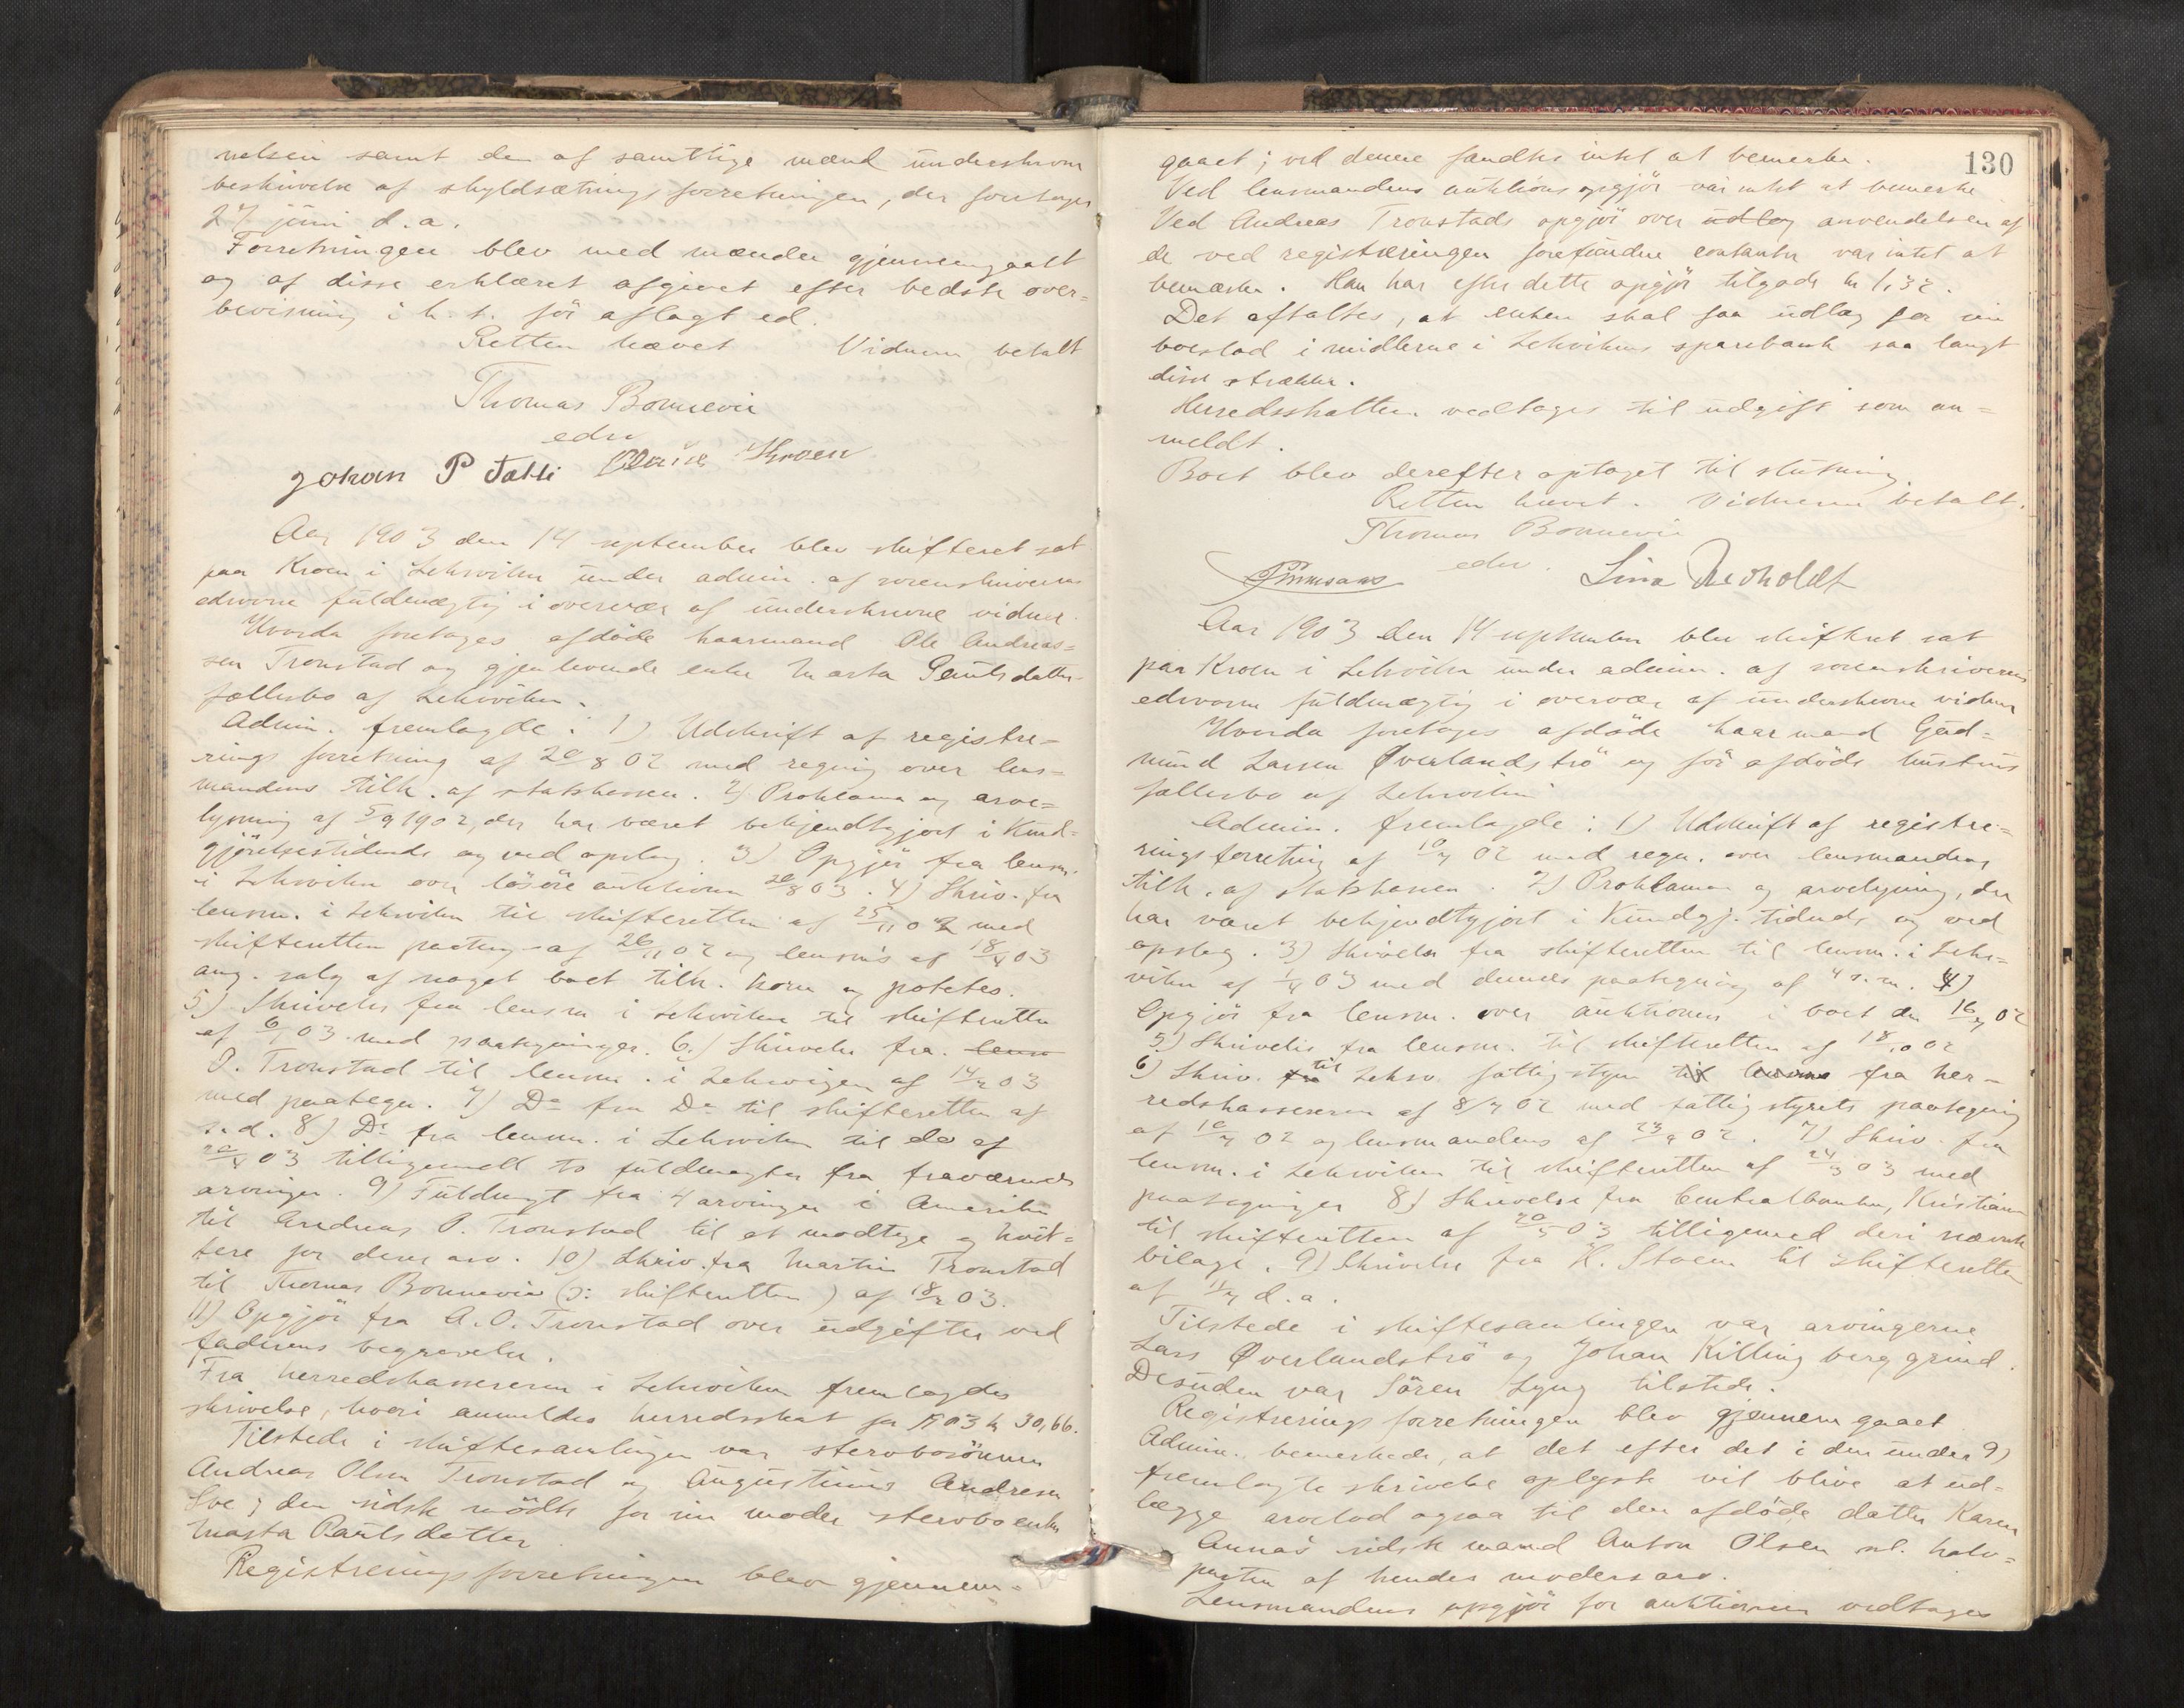 nelsen samt den af samtlige mænd underskrevne
beskrivelse af skyldsætningsforretningen, der foretages
27 juni d. a.
Forretningen blev med mændene gjennemgaaet
og af disse erklæret afgivet efter bedste over=
bevisning i h. t. før aflagt ed.
Retten hævet Vidnerne betalt
Thomas Bonnevie
edsv
Johan P Kroen
Aar 1903 den 14 september blev skifteret sat
paa Kroen i Leksviken under admin. af sorenskriverens
edsvorne fuldmægtig i overvær af underskrevne vidner.
Hvorda foretages afdøde haarmand Ole Andreas=
sen Tronstad og gjenlevende enke Marta Paulsdatters
fællesbo af Leksviken.
Admin. fremlagde: 1) Udskrift af registre=
ringsforretning af 20/8 02 med regning over lens=
mandens tilk. af statskassen. 2) Proklama og arve=
lysning af 5/9 1902, der har været bekjendtgjort i Kund=
gjørelsestidende og ved opslag. 3) Opgjør fra lensm.
i Leksviken over løsøreauktionen 20/8 03. 4) Skriv. fra
lensm. i Leksviken til skifteretten af 25/11 02 med
skifteretten paategn. af 26/11 02 og lensm's af 18/4 03
ang. salg af noget boet tilh. korn og potetes.
5) Skrivelse fra lensm i Leksviken til skifteretten
af 6/1 03 med paategninger. 6) Skrivelse fra lensm
O. Tronstad til lensm. i Leksvigen af 14/2 03
med paategn. 7) Do fra Do til skifteretten af
s. d. 8) Do fra lensm. i Leksviken til do af
20/4 03 tilligemed to fuldmagter fra fraværende
arvinger. 9) Fuldmagt fra 4 arvinger i Amerika
til Andreas O. Tronstad til at modtage og kvit=
tere for deres arv. 10) Skriv. fra Martin Tronstad
til Thomas Bonnevie (ɔ: skifteretten) af 18/2 03.
11) Opgjør fra A. O. Tronstad over udgifter ved
faderens begravelse.
Fra herredskassereren i Leksviken fremlagdes
skrivelse, hvori anmeldes herredsskat for 1903 kr 30,66.
Tilstede i skiftesamlingen var stervbosønnen
Andreas Olsen Tronstad og Augustinus Andresen
; den sidste mødte for sin moder stervboenken
Marta Paulsdatter.
Registreringsforretningen blev gjennem=
130
gaaet; ved denne fandtes intet at bemerke.
Ved lensmandens auktionsopgjør var intet at bemerke
Ved Andreas Tronstads opgjør over udlæg anvendelsen af
de ved registreringen forefundne contanter var intet at
bemærke. Han har efter dette opgjør tilgode kr 1,32.
Det aftaltes, at enken skal faa udlæg for sin
boeslod i midlerne i Leksvikens sparebank saa langt
disse strækker.
Herredsskatten vedtages til udgift som an=
meldt.
Boet blev derefter optaget til slutning.
Retten hævet. Vidnerne betalt.
Thomas Bonnevie
edsv.
Lina
Aar 1903 den 14 september blev skifteret sat
paa Kroen i Leksviken under admin. af sorenskriverens
edsvorne fuldmægtig i overvær af underskrevne vidner
Hvorda foretages afdøde haarmand Gud=
mund Larsen Øverlandstrø og før afdøde hustrus
fællesbo af Leksviken
Admin. fremlagde: 1) Udskrift af registre=
ringsforretning af 10/7 02 med regn. over lensmandens
tilk. af statskassen. 2) Proklama og arvelysning, der
har været bekjendtgjort i Kundgj. tidende og ved
opslag. 3) Skrivelse fra skifteretten til lensm. i Leks=
viken af 1/4 03 med dennes paategning af 4 s. m. 4)
Opgjør fra lensm. over auktionen i boet den 16/7 02
5) Skrivelse fra lensm. til skifteretten af 18/10 02
6) Skriv. fra til Leksv. fattigstyre til lensm fra her=
redskassereren af 8/7 02 med fattigstyrets paategning
af 10/7 02 og lensmandens af 23/9 02. 7) Skriv. fra
lensm. i Leksviken til skifteretten af 24/3 03 med
paategninger 8) Skrivelse fra Centralbanken, Kristiania
til skifteretten af 20/5 03 tilligemed deri nævnte
bilage. 9) Skrivelse fra K. Stoen til skifteretten
af 11/7 d. a.
Tilstede i skiftesamlingen var arvingerne
Lars Øverlandstrø og Johan Killingberggrind.
Desuden var Søren Lyng tilstede.
Registreringsforretningen blev gjennemgaaet
Admin. bemerkede, at det efter det i den under 9)
fremlagte skrivelse oplyste vil blive at ud=
lægge arvelod ogsaa til den afdøde datter Karen
Anna's sidste mand Anton Olsen nl. halv=
parten af hendes modersarv.
Lensmandens opgjør for auktionen vedtages